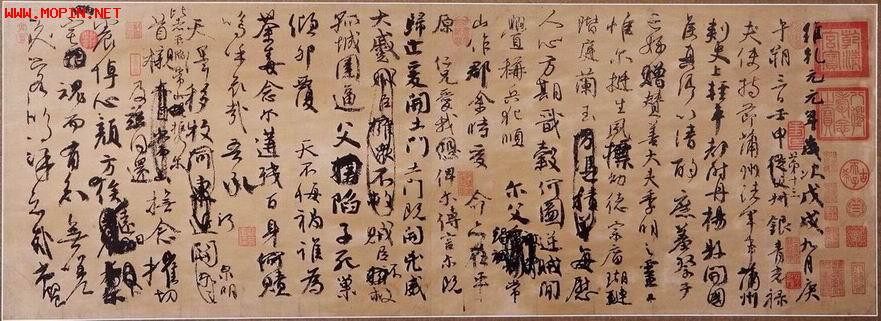 WWW.MOPIN.NET
維乾元元年歲次戊戌九月庚
午朔三日壬申第十三從父銀青光祿
夫使持節蒲州諸軍事蒲州
刺史上輕車都尉丹楊縣開國
侯真卿以清酌庶羞祭于
亡姪贈贊善大夫季明之靈曰
惟爾挺生夙標幼德宗廟瑚璉
階庭蘭玉每慰
人心方期戩穀何圖逆賊間
釁稱兵犯順爾父竭誠常
山作郡余時受命亦在平
原仁兄愛我俾爾傳言爾既
歸止爰開土門土門既開凶威
大蹙賊臣不救
孤城圍逼父陷子死巢
傾卵覆天不悔禍誰為
荼毒念爾遘殘百身何贖
嗚呼哀哉吾承
天澤移牧河關泉明
比者再陷常山攜爾
首櫬及茲同還撫念摧切
震悼心顏方俟遠日
魂而有知無嗟
久客嗚呼哀哉尚饗